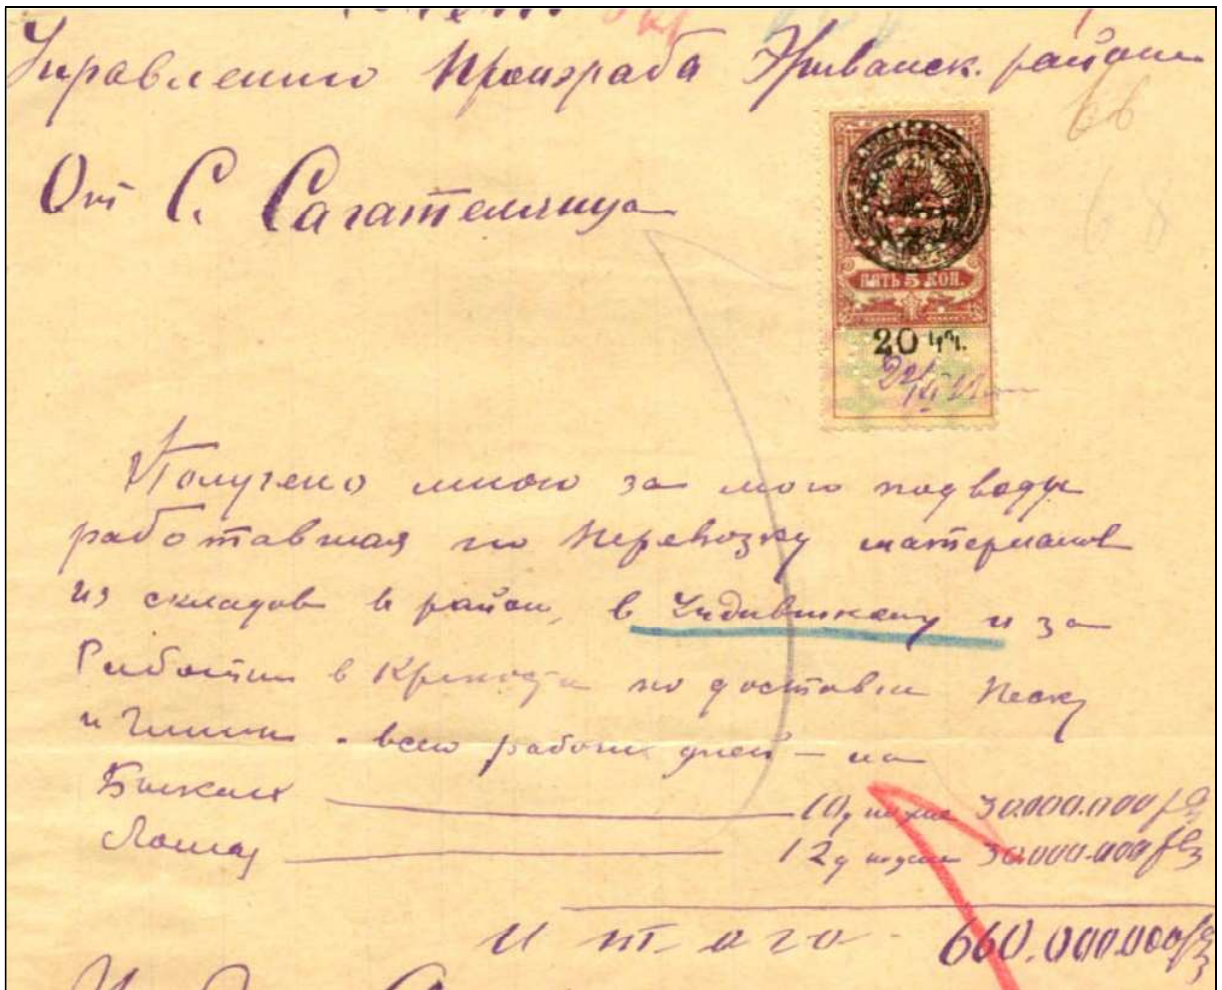 Управлению Произраба Эриванск. района
66
От С. Сагателянца
68
ПЯТЬ 5 КОП.
20 կոպ.
Получено мною за мою подводу
работавшая по перевозку материалов
из складов в район, в и за
Работы в Крепости по доставки песку
и Глины. всего рабочих дней – на
Быках 10 30.000.000
Лошад 12 30.000.000
Итого 660.000.000